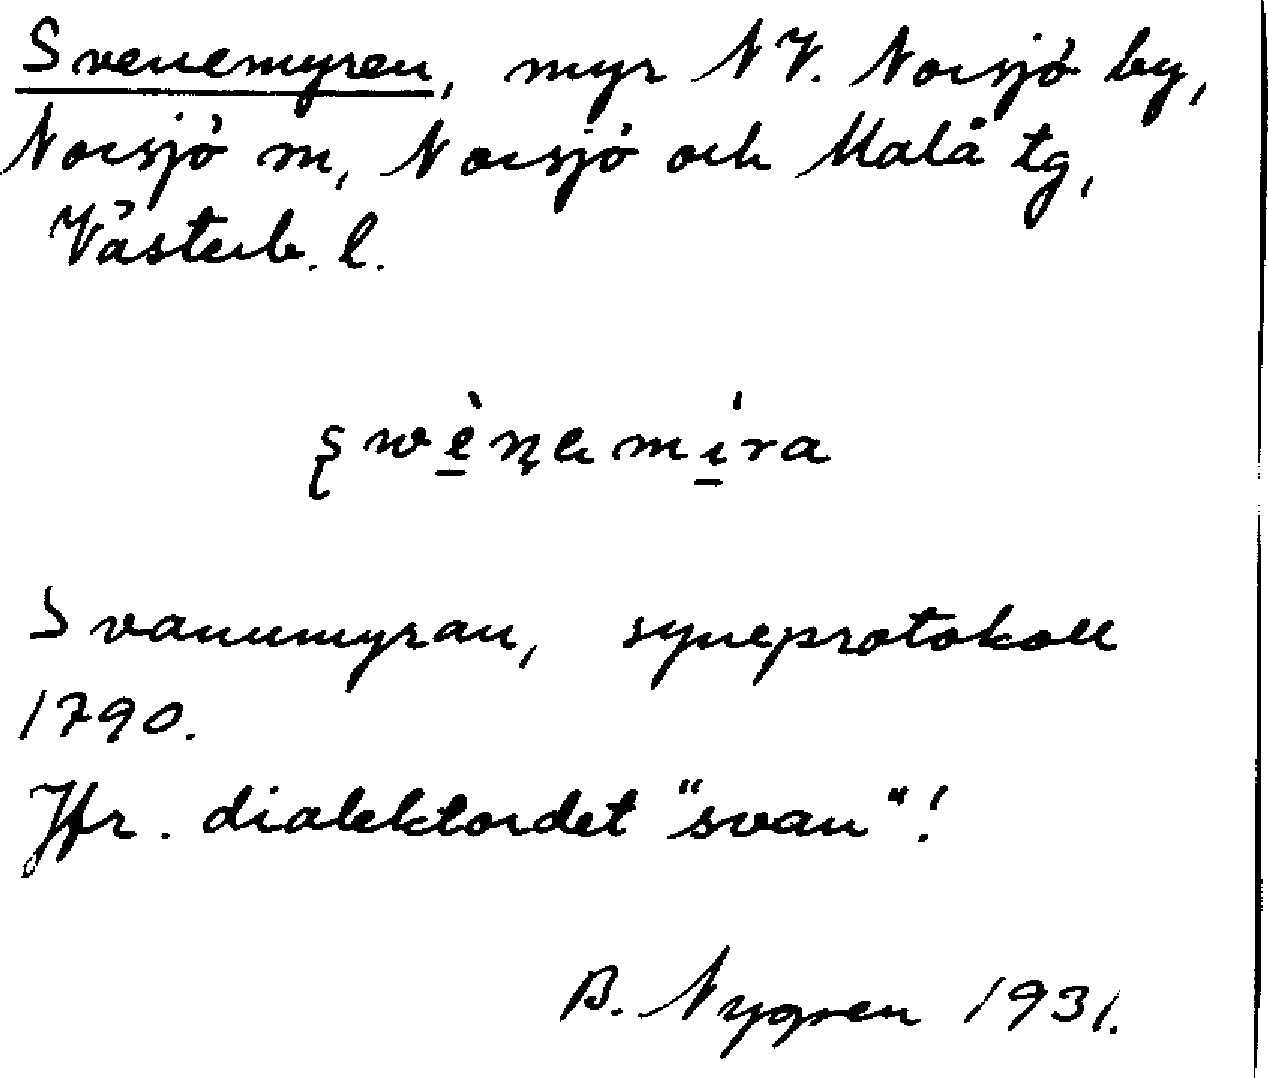 Svenemyren, myr NV. Norsjö by,
Norsjö m, Norsjö och Malå tg,
Västerb. l.
Svanumyran, syneprotokoll
1790.
Jfr. dialektordet "svan"!
B. Nygren 1931.